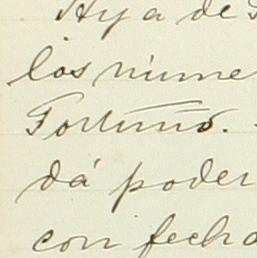 Hija de
los núme
Fortuno.
dá poder
con fecha